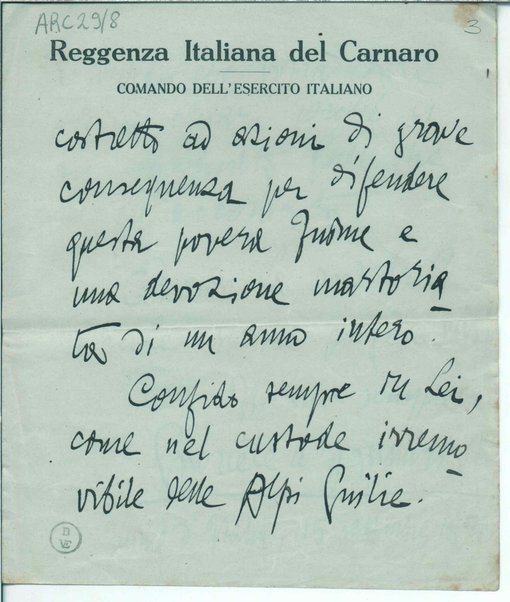 ARC29/8
3
Reggenza Italiana del Carnaro
COMANDO DELL'ESERCITO ITALIANO
costretto ad azioni di grave
conseguenza per difendere
questa povera Fiume e
una devozione martoria
ta di un anno intero.
Confido sempre in Lei,
come nel custode irremo
vibile delle Alpi Giulie.